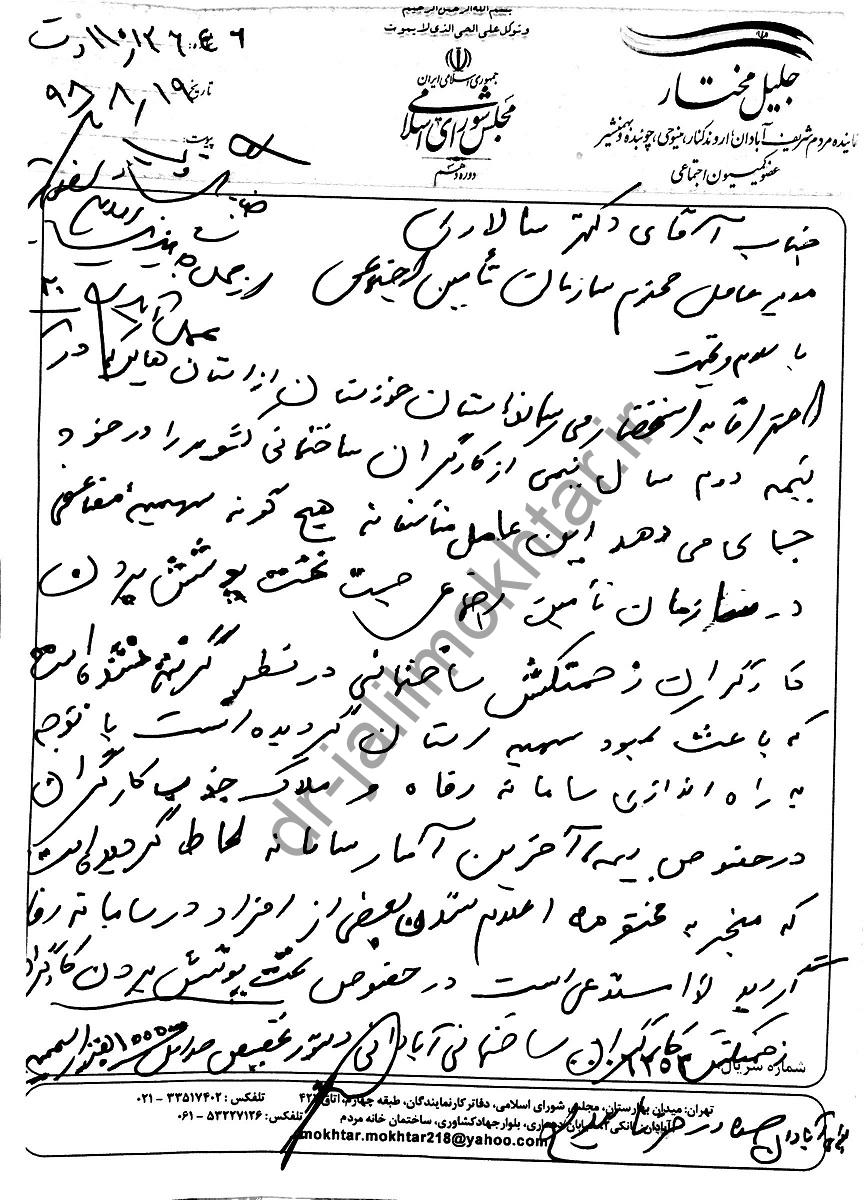 بسم الله الرحمن الرحیم
وتوکل علی الحی الذی لایموت
جمهوری اسلامی ایران
مجلس شورای اسلامی
دوره دهم
جلیل مختار
نماینده مردم شریف آبادان، اروندکنار، مینوحی، چوئبده و بهمنشیر
عضو کمیسیون اجتماعی
تاریخ: ۹۸/۸/۱۹
پیوست:
جناب آقای دکتر سالاری
مدیر عامل محترم سازمان تأمین اجتماعی
با سلام و تحیت
احتراماً به استحضار می رساند استان خوزستان از استان هایی که در
نیمه دوم سال نیمی از کارگران ساختمانی کشور را در خود
جای می دهد این عامل متأسفانه هیچ گونه سهمیه مضاعفی
در سازمان تأمین اجتماعی جهت تحت پوشش بردن
کارگران زحمتکش ساختمانی در نظر گرفته نشده است
که باعث کمبود سهمیه استان گردیده است با توجه
به راه اندازی سامانه رفاه و ملاک جذب کارگران
در خصوص بیمه، آخرین آمار سامانه لحاظ گردیده است
که منجر به مختومه اعلام شدن بعضی از افراد در سامانه رفاه
گردید لذا مستدعی است در خصوص تحت پوشش بردن کارگران
زحمتکش کارگران ساختمانی آبادان دستور تخصیص حداقل ۱۰۰۰ سهمیه
شماره سریال: ۱۳۵۳
آبادان صادر فرمایید
تهران: میدان بهارستان، مجلس شورای اسلامی، دفاتر کار نمایندگان، طبقه چهارم، اتاق ۴۲ تلفکس: ۳۳۵۱۷۴۰۲ - ۰۲۱
بلوار جهاد کشاورزی، ساختمان خانه مردم تلفکس: ۵۳۲۲۷۱۲۶ - ۰۶۱
mokhtar.mokhtar218@yahoo.com
dr-jalilmokhtar.ir